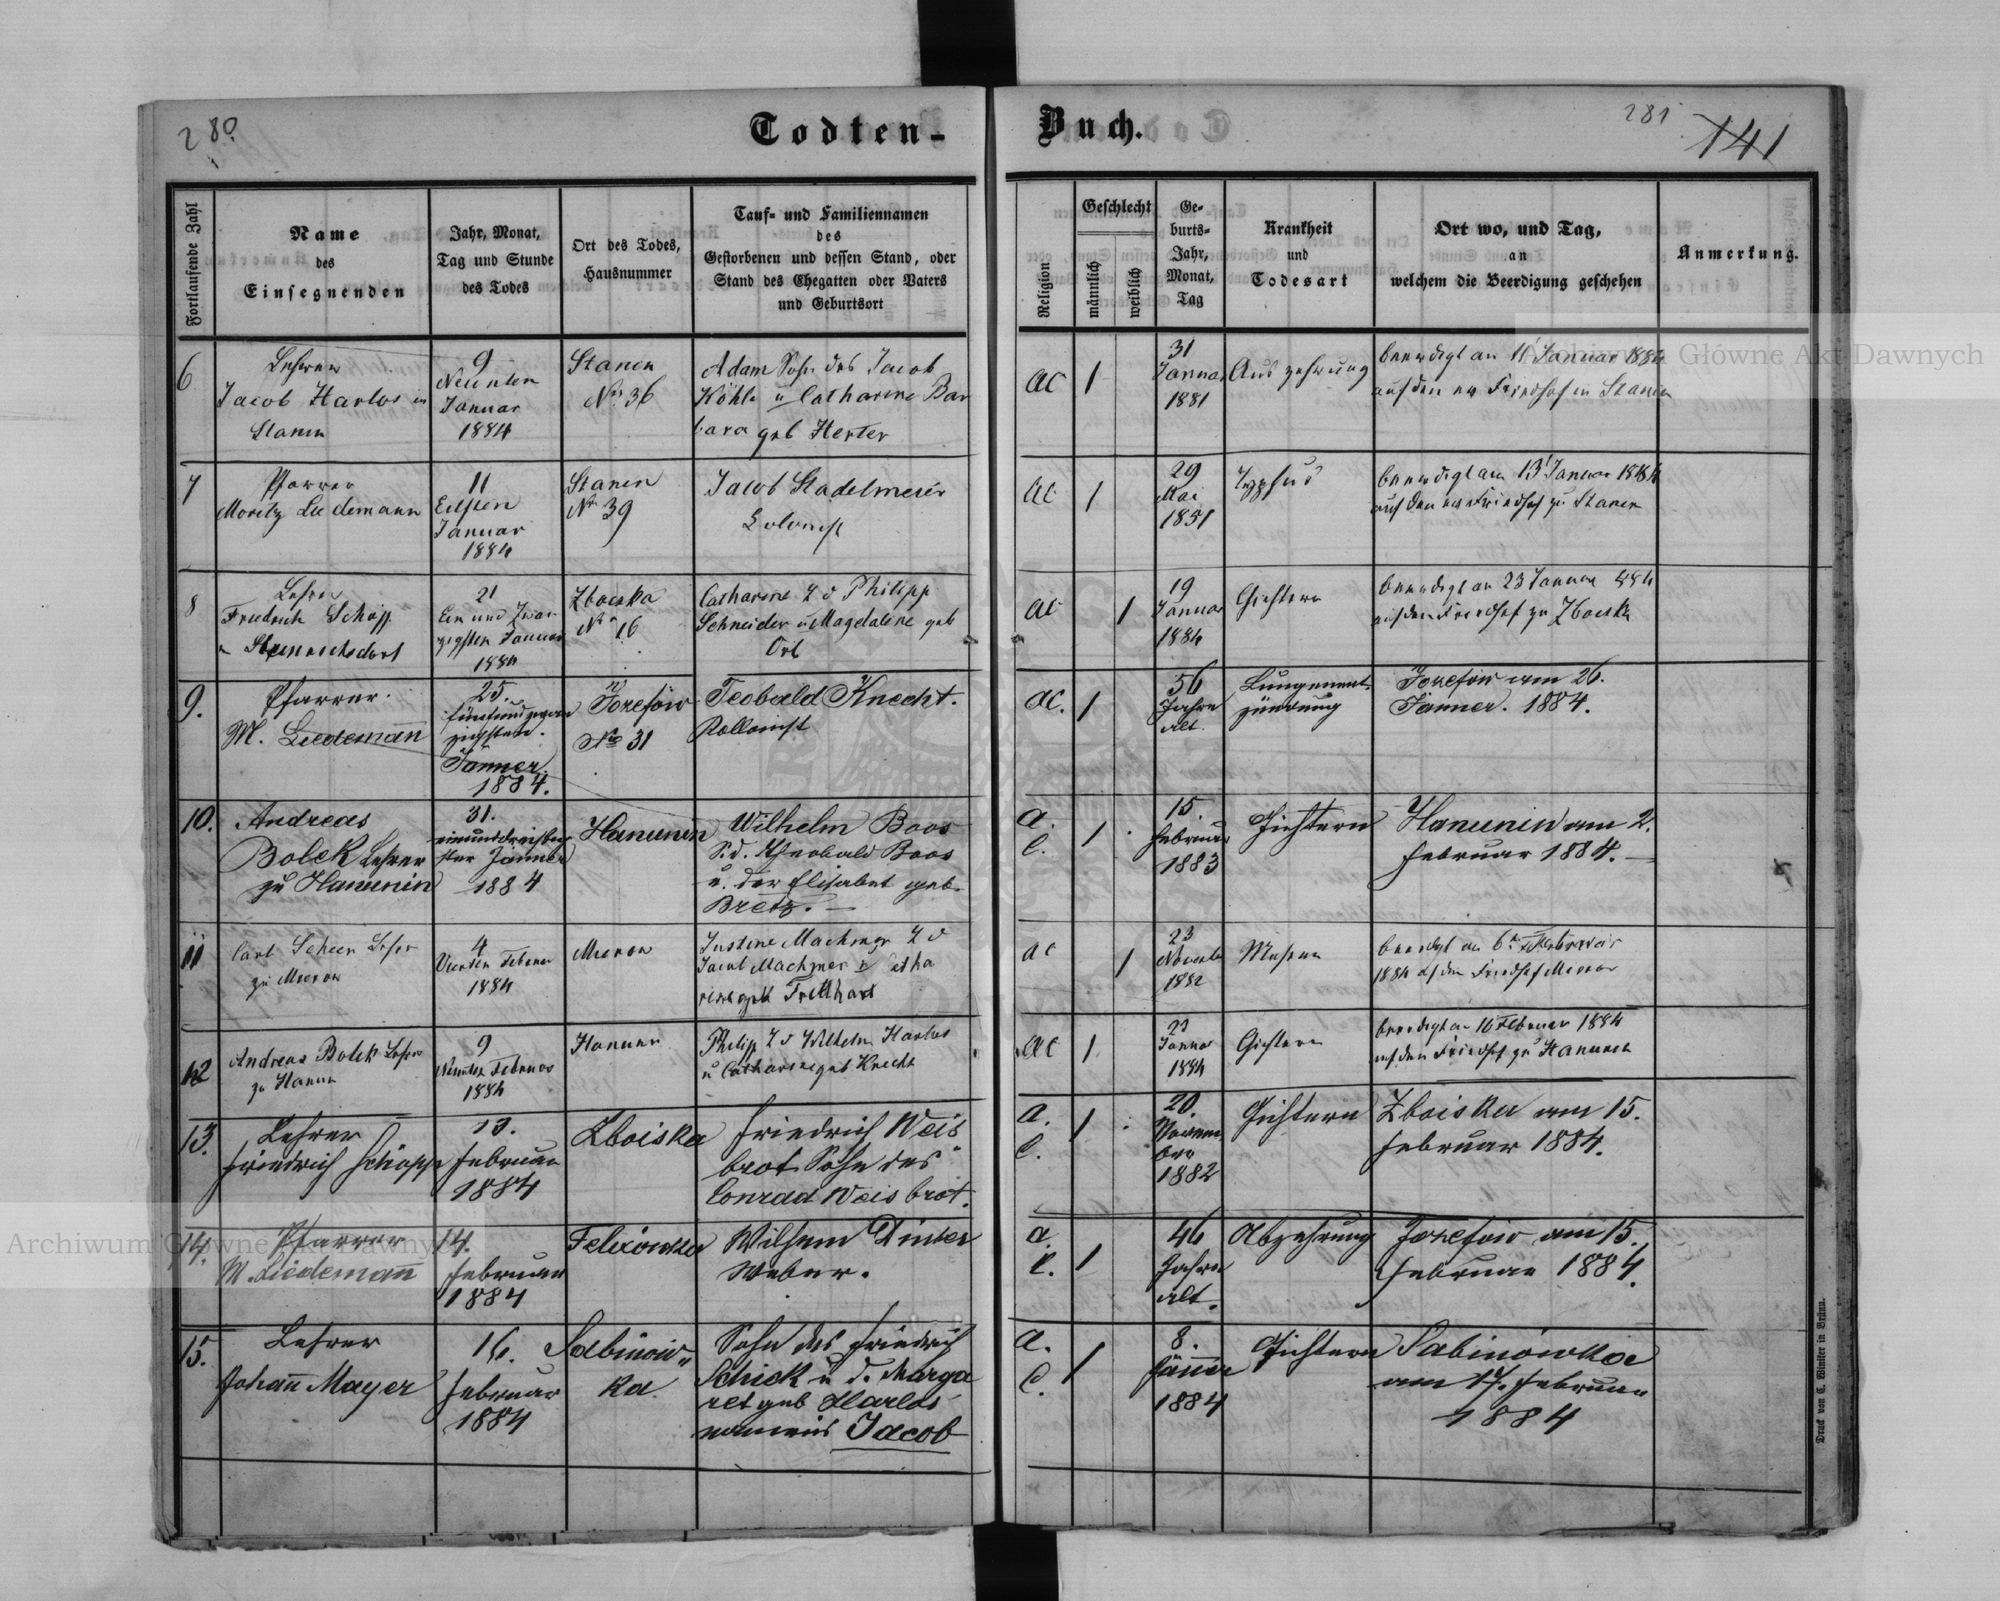 280
Todten-
Buch.
281
141
Fortlaufende Zahl
Name
des
Einsegnenden
Jahr, Monat,
Tag und Stunde
des Todes
Ort des Todes,
Hausnummer
Tauf- und Familiennamen
des
Gestorbenen und dessen Stand, oder
Stand des Ehegatten oder Vaters
und Geburtsort
Religion
Geschlecht
männlich
weiblich
Ge-
burts-
Jahr,
Monat,
Tag
Krankheit
und
Todesart
Ort wo, und Tag,
an
welchem die Beerdigung geschehen
Anmerkung.
6
Lehrer
Jacob Harlos in
Stanin
9
Neunten
Januar
1884
Stanin
No 36
Adam Sohn des Jacob
Köhle u Catharine Bar
bara geb Herter
ac
1
31
Januar
1881
Auszehrung
beerdigt am 11 Januar 1884
auf den ev Friedhof in Stanin
7
Pfarrer
Moritz Liedemann
11
Eilften
Januar
1884
Stanin
No 39
Jacob Stadelmeier
Colonist
ac
1
29
Mai
1851
Typhus
beerdigt am 13 Januar 1884
auf den ev Friedhof zu Stanin
8
Lehrer
Friedrich Schöpp
21
Ein und Zwan
zigsten Januar
1884
Zboiska
No 16
Catharine T d Philipp
Schneider u Magdaline geb
Ort
ac
1
19
Januar
1884
Gichtern
beerdigt am 23 Januar 884
auf den Friedhof zu Zboiska
9.
Pfarrer.
M. Liedemann
25.
fünfundzwan
zigsten.
Jänner.
1884.
Jozefów
No 31
Teobald Knecht.
Kollonist
ac.
1
56
Jahre
alt.
Lungenent-
zündung
Jozefów am 26.
Jänner. 1884.
10.
Andreas
Bolek Lehrer
zu Hanunin
31.
einunddreißig
ster Jänner
1884
Hanunin
Wilhelm Boos
S. d. Theobald Boos
u. der Elisabet geb.
Bretz.
a.
c.
1.
15.
Februar
1883
Gichtern
Hanunin am 2.
Februar 1884.
11
Carl Scheer Lehrer
zu Mierow
4
Vierten Februar
1884
Mierow
Justine Machmer T d
Jacob Machmer u Catha
rine geb Tretthart
ac
1
23
Novemb
1882
Masern
beerdigt am 6ten Februar
1884 auf den Friedhof Mierow
12
Andreas Bolek Lehrer
zu Hanun
9
Neunten Februar
1884
Hanunin
Philip S d Wilhelm Harlos
u Catharine geb Knecht
ac
1
Januar
1884
Gichtern
beerdigt am 10 Februar 1884
auf den Friedhof zu Hanunin
13.
Lehrer
Friedrich Schöpp
13.
Februar
1884
Zboiska
Friedrich Weis
brot Sohn des
Conrad Weisbrot.
a.
c.
1
20.
Novem
ber
1882
Gichtern
Zboiska am 15.
Februar 1884.
14.
Pfarrer
M. Liedemann
14.
Februar
1884
Felixówka
Wilhelm Dinter
Weber.
a.
c.
1
46
Jahre
alt.
Abzehrung
Jozefow am 15.
Februar 1884.
15.
Lehrer
Johann Mayer
16.
Februar
1884
Sabinow-
ka
Sohn des Friedrich
Schick u. d. Marga
ret geb Harlos
namens Jacob
a.
c.
1
8.
Jänner
1884
Gichtern
Sabinówka
am 17. Februar
1884
Druck von C. Winiker in Brünn.
Archiwum Główne Akt Dawnych
Archiwum Główne Akt Dawnych